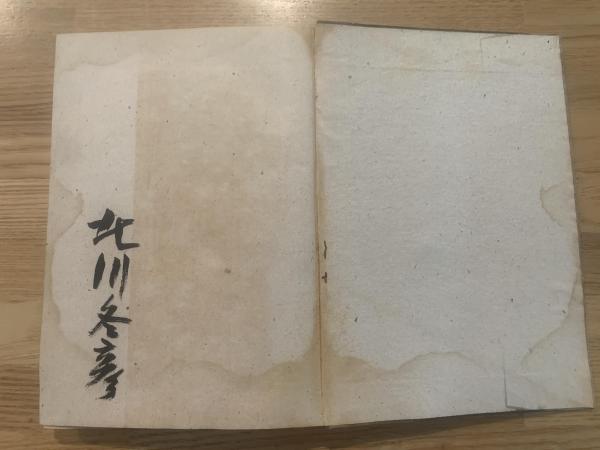 北川冬彦